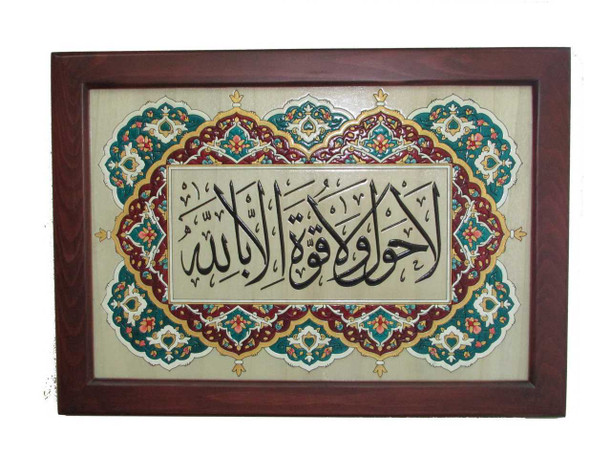 لا حول ولا قوّة إلّا بالله